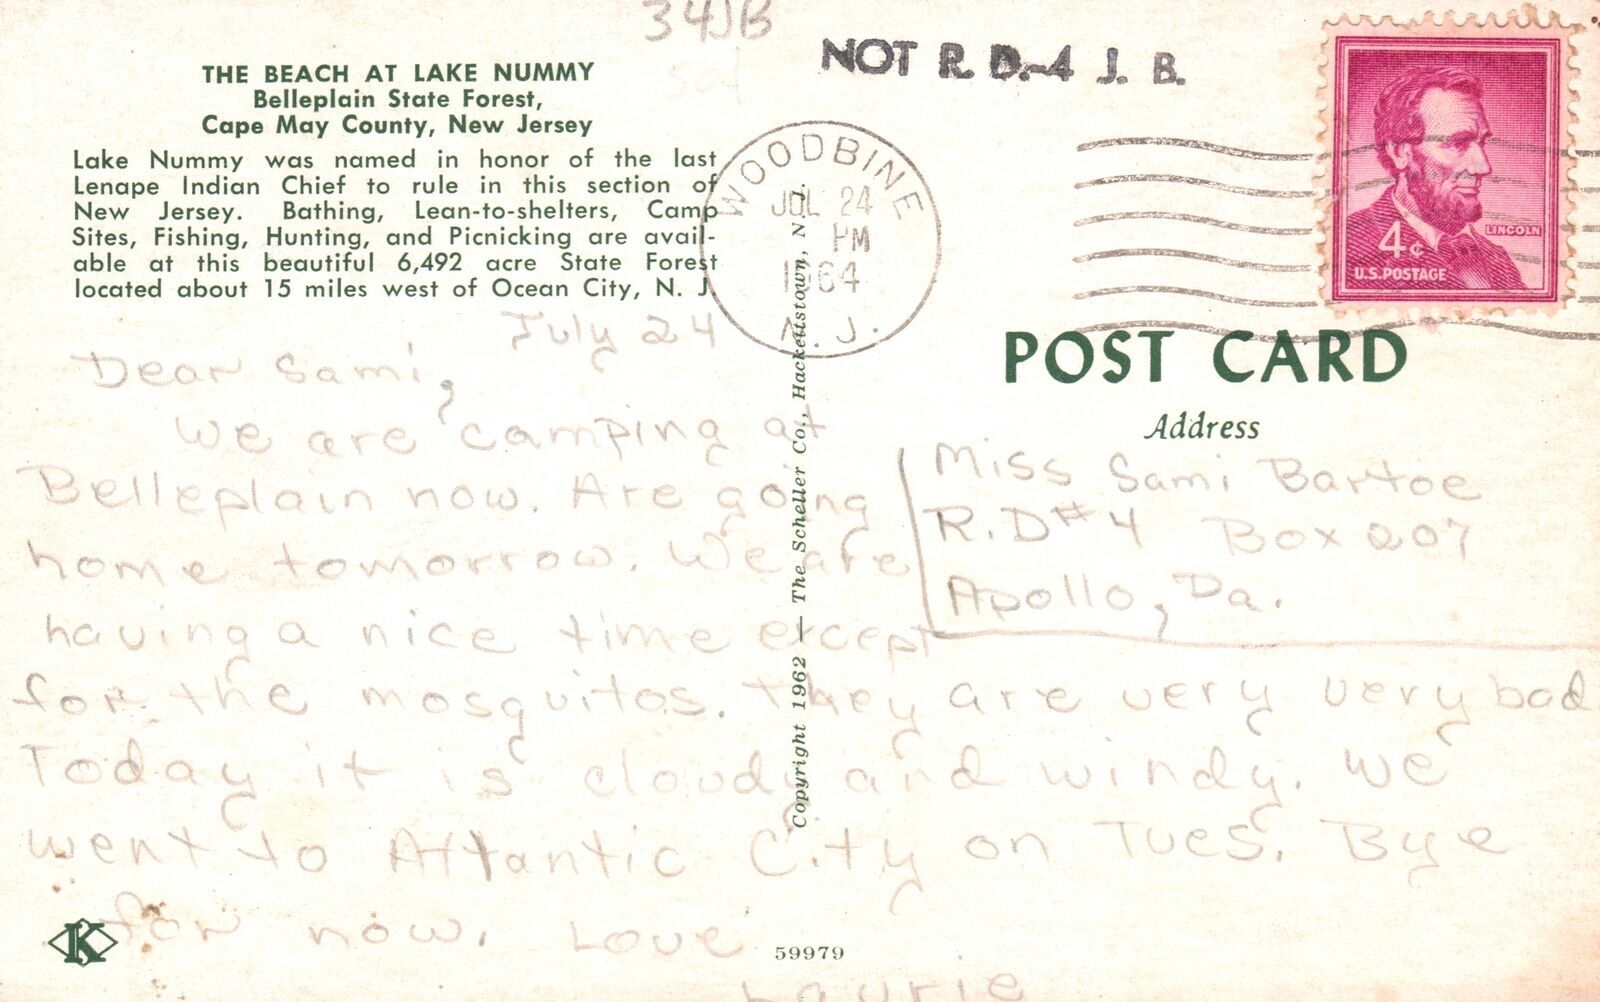 34JB
NOT R. D.-4 J. B.
THE BEACH AT LAKE NUMMY
Belleplain State Forest,
Cape May County, New Jersey
Lake Nummy was named in honor of the last
Lenape Indian Chief to rule in this section of
New Jersey. Bathing, Lean-to-shelters, Camp
Sites, Fishing, Hunting, and Picnicking are avail-
able at this beautiful 6,492 acre State Forest
located about 15 miles west of Ocean City, N. J.
WOODBINE
JUL 24
PM
1964
N. J.
4¢
LINCOLN
U.S. POSTAGE
POST CARD
Address
Miss Sami Bartoe
R.D#4 Box 207
Apollo, Pa.
July 24
Dear Sami,
We are camping at
Belleplain now. Are going
home tomorrow. We are
having a nice time except
for the mosquitos. they are very very bad
Today it is cloudy and windy. We
went to Atlantic City on Tues. Bye
for now. Love
Laurie
Copyright 1962 — The Scheller Co., Hackettstown, N. J.
K
59979